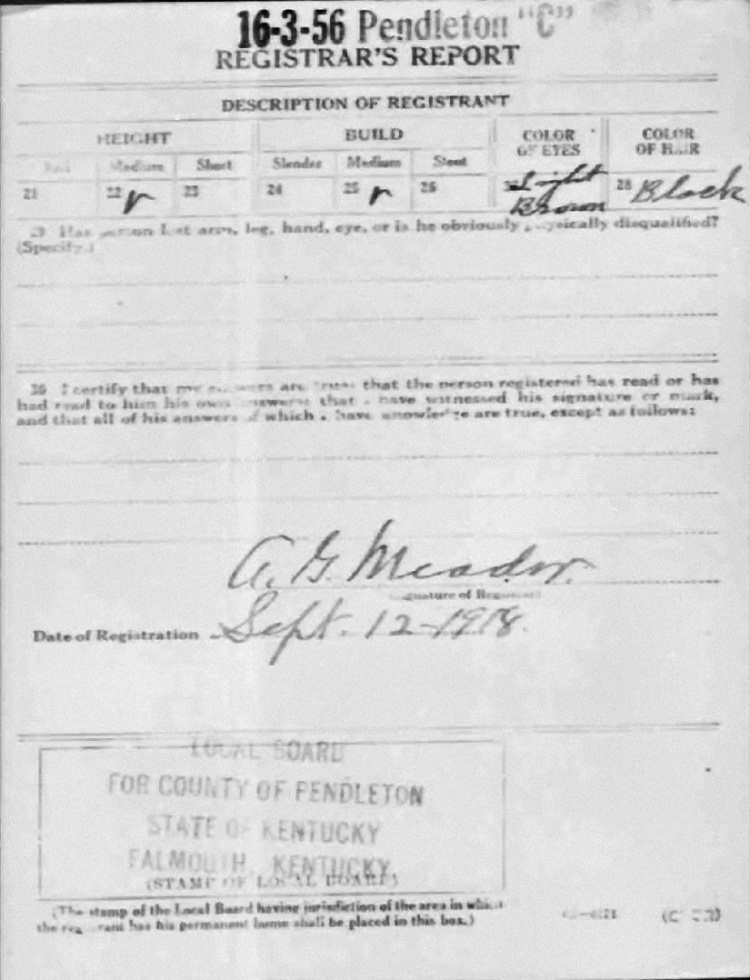 16-3-56 Pendleton "C"
REGISTRAR'S REPORT
DESCRIPTION OF REGISTRANT
HEIGHT BUILD COLOR OF EYES COLOR OF HAIR
Medium Short Slender Medium Stout
21 22 ✓ 23 24 25 ✓ 26 Light Brown 28 Black
29 Has person lost arm, leg, hand, eye, or is he obviously physically disqualified?
(Specify.)
30 I certify that my answers are true; that the person registered has read or has
had read to him his own answers; that I have witnessed his signature or mark,
and that all of his answers of which I have knowledge are true, except as follows:
A. G. Meador.
Signature of Registrar
Date of Registration Sept. 12-1918.
LOCAL BOARD
FOR COUNTY OF PENDLETON
STATE OF KENTUCKY
FALMOUTH, KENTUCKY
(STAMP OF LOCAL BOARD)
(The stamp of the Local Board having jurisdiction of the area in which
the registrant has his permanent home shall be placed in this box.)